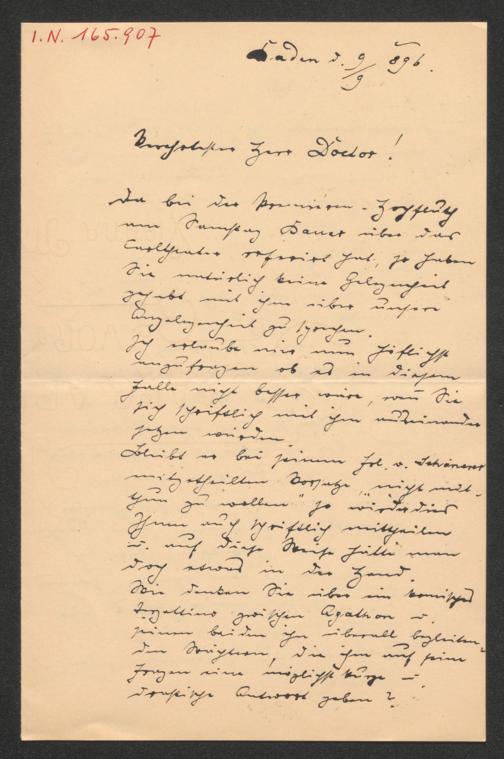 I.N. 165.907
Baden d. 9/9 896.
Verehrtester Herr Doctor!
Da bei der Premièren-Hochfluth
am Samstag Bauer über das
Carltheater referirt hat, so haben
Sie natürlich keine Gelegenheit
gehabt mit ihm über unsere
Angelegenheit zu sprechen.
Ich erlaube mir nun höflichst
anzufragen ob es in diesem
Falle nicht besser wäre, wenn Sie
sich schriftlich mit ihm auseinander
setzen würden.
Bleibt er bei seinem Frl. v. Schönerer
mitgetheilten Vorsatze, "nicht mit-
thun zu wollen" so wird er dies
Ihnen auch schriftlich mittheilen
u. auf diese Weise hätte man
doch etwas in der Hand.
Wie denken Sie über ein komisches
Terzettino zwischen Agathon u.
seinen beiden ihn überall begleiten-
den Wächtern, die ihm auf seine
Fragen eine möglichst kurze u.
drastische Antwort geben?